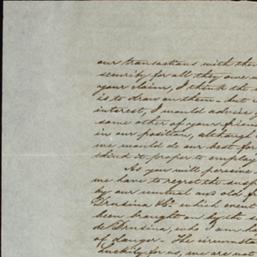 our transactions with the
security for all they owe
your claim, I think the
is to draw on them - but
interest, I would advise
some other of your frien
in our position, altough
we would do our best for
think proper to employ
As you will perceive
we have to regret the susp
by our mutual and old f
Drusina &Co. which event
been brought on by the
de Drusina, who I am ha
of danger. The circumsta
luckily for us, we are not